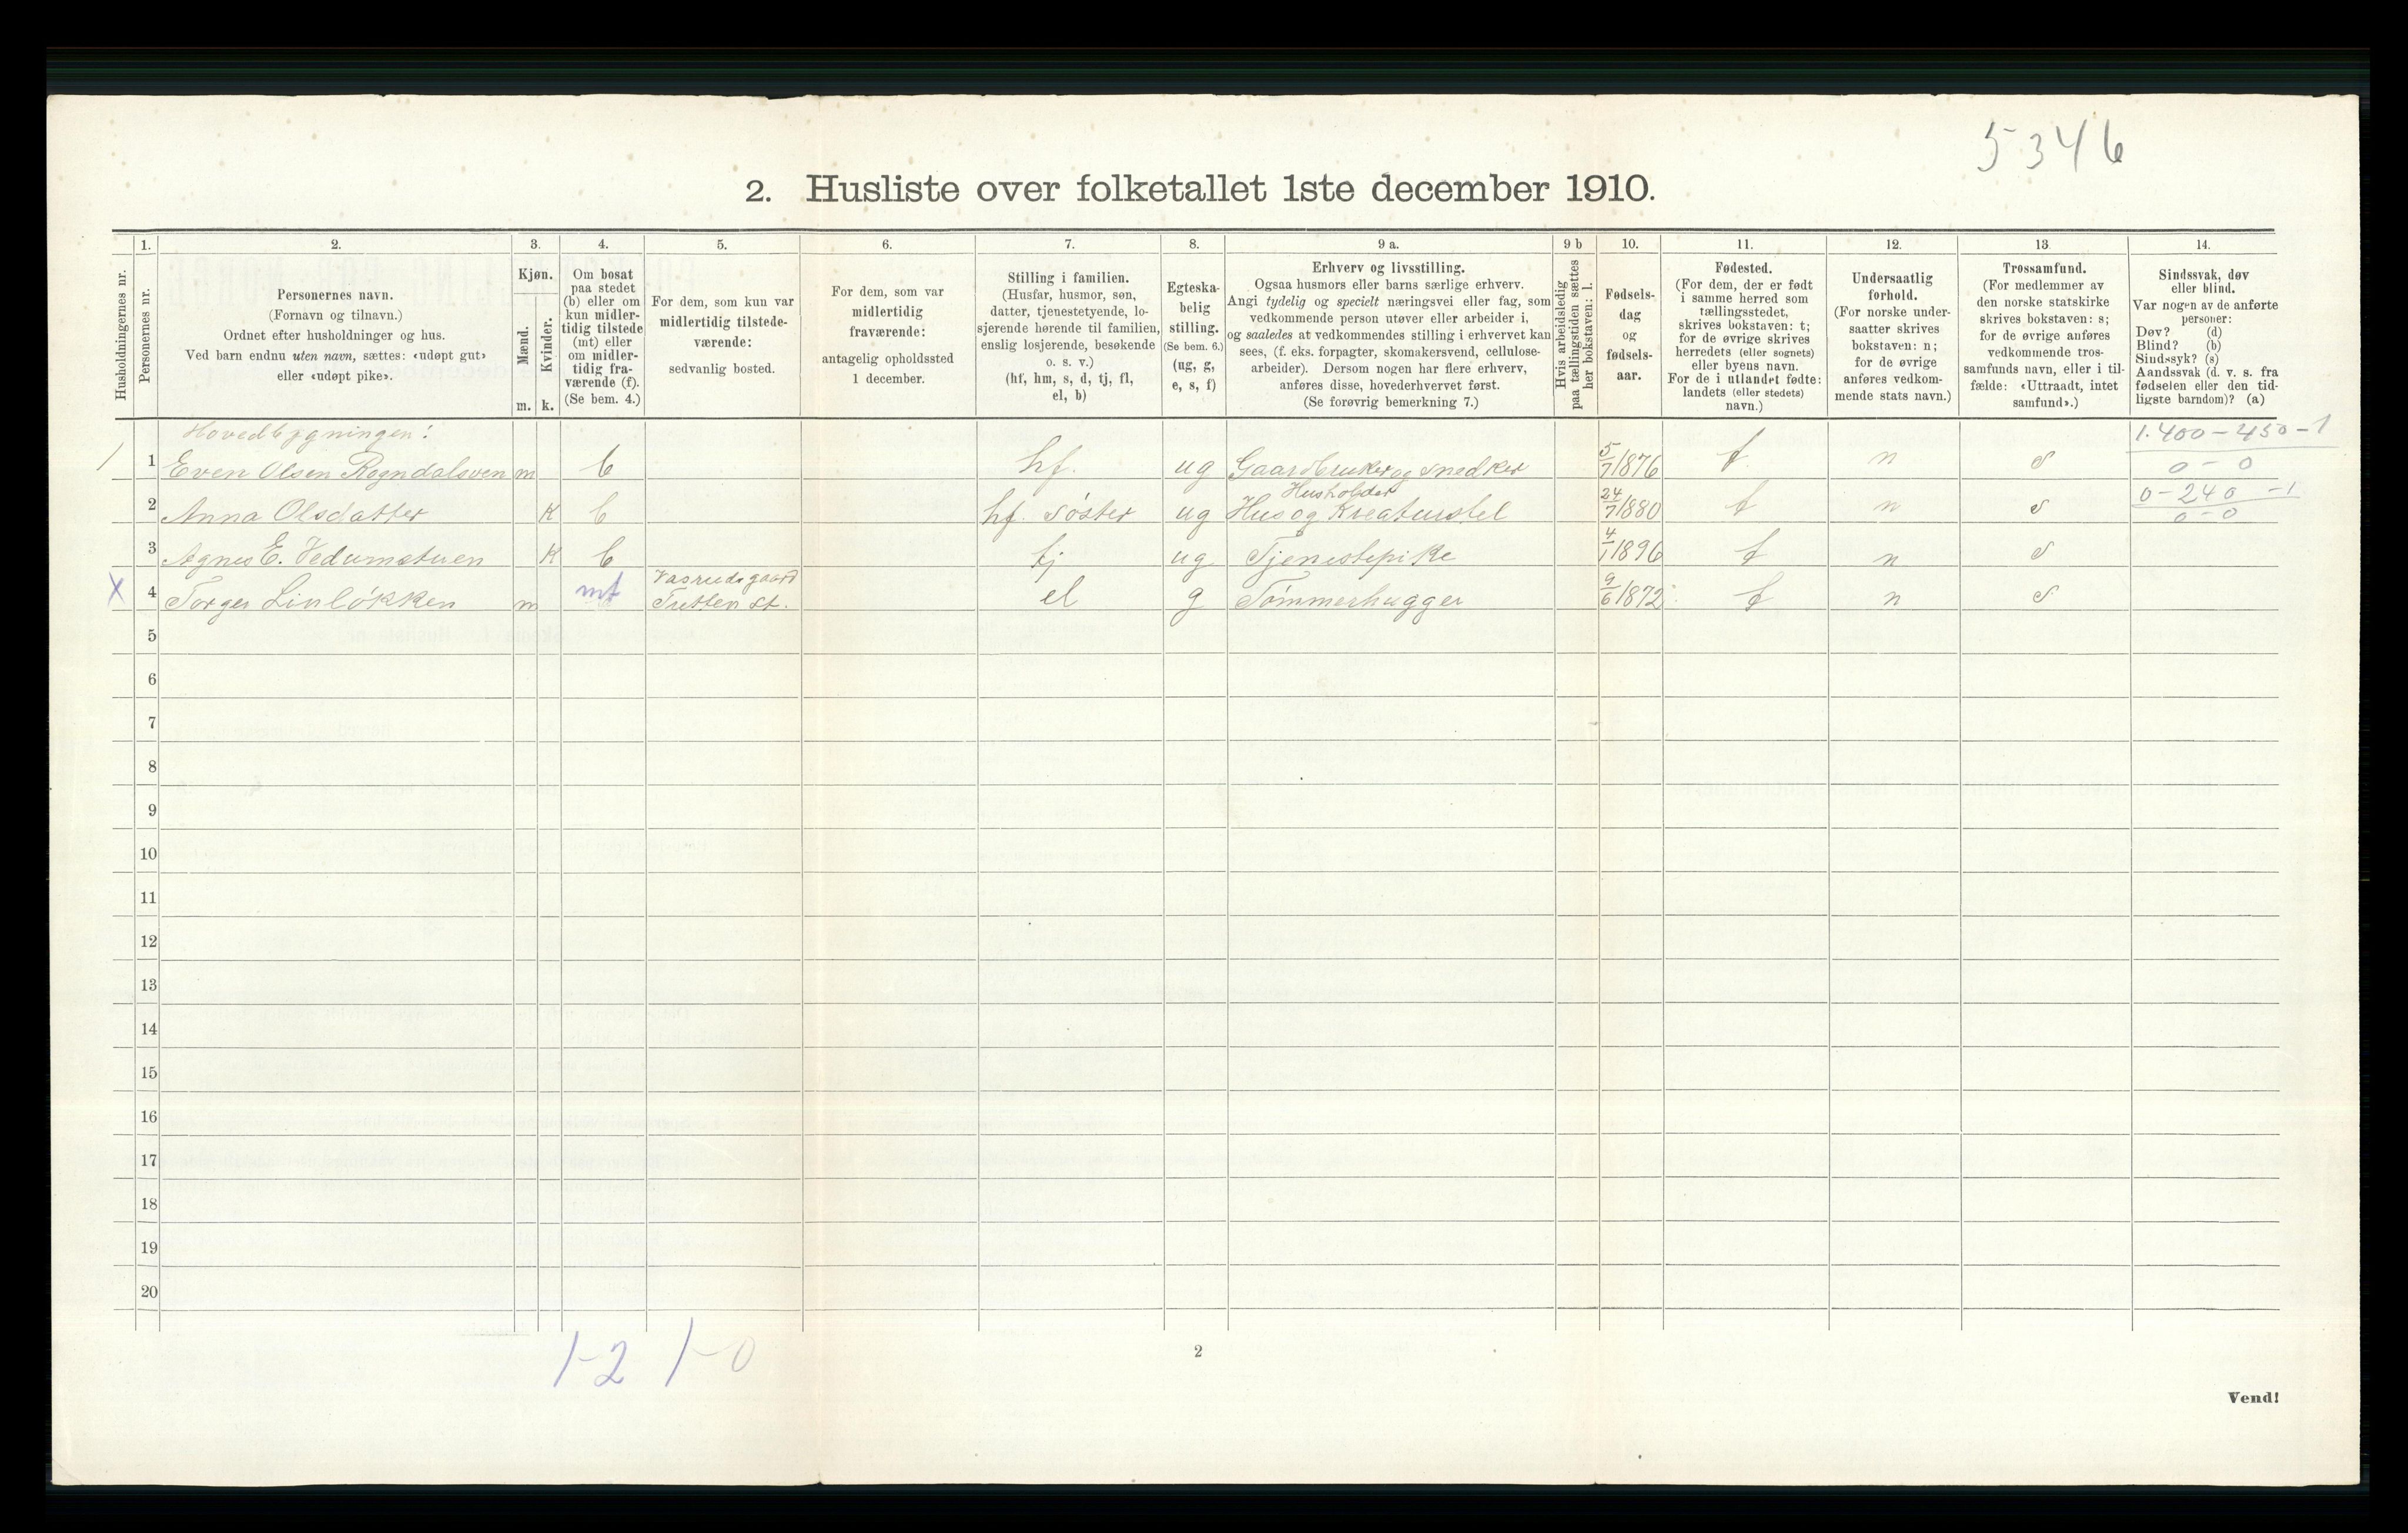 5346
2. Husliste over folketallet 1ste december 1910.
Husholdningernes nr.
1.
Personernes nr.
2.
Personernes navn.
(Fornavn og tilnavn.)
Ordnet efter husholdninger og hus.
Ved barn endnu uten navn, sættes: «udøpt gut»
eller «udøpt pike».
3.
Kjøn.
Mænd.
Kvinder.
m. k.
4.
Om bosat
paa stedet
(b) eller om
kun midler-
tidig tilstede
(mt) eller
om midler-
tidig fra-
værende (f).
(Se bem. 4.)
5.
For dem, som kun var
midlertidig tilstede-
værende:
sedvanlig bosted.
6.
For dem, som var
midlertidig
fraværende:
antagelig opholdssted
1 december.
7.
Stilling i familien.
(Husfar, husmor, søn,
datter, tjenestetyende, lo-
sjerende hørende til familien,
enslig losjerende, besøkende
o. s. v.)
(hf, hm, s, d, tj, fl,
el, b)
8.
Egteska-
belig
stilling.
(Se bem. 6.)
(ug, g,
e, s, f)
9 a.
Erhverv og livsstilling.
Ogsaa husmors eller barns særlige erhverv.
Angi tydelig og specielt næringsvei eller fag, som
vedkommende person utøver eller arbeider i,
og saaledes at vedkommendes stilling i erhvervet kan
sees, (f. eks. forpagter, skomakersvend, cellulose-
arbeider). Dersom nogen har flere erhverv,
anføres disse, hovederhvervet først.
(Se forøvrig bemerkning 7.)
9 b
Hvis arbeidsledig
paa tællingstiden sættes
her bokstaven: l.
10.
Fødsels-
dag
og
fødsels-
aar.
11.
Fødested.
(For dem, der er født
i samme herred som
tællingsstedet,
skrives bokstaven: t;
for de øvrige skrives
herredets (eller sognets)
eller byens navn.
For de i utlandet fødte:
landets (eller stedets)
navn.)
12.
Undersaatlig
forhold.
(For norske under-
saatter skrives
bokstaven: n;
for de øvrige
anføres vedkom-
mende stats navn.)
13
Trossamfund.
(For medlemmer av
den norske statskirke
skrives bokstaven: s;
for de øvrige anføres
vedkommende tros-
samfunds navn, eller i til-
fælde: «Uttraadt, intet
samfund».)
14.
Sindssvak, døv
eller blind.
Var nogen av de anførte
personer:
Døv? (d)
Blind? (b)
Sindssyk? (s)
Aandssvak (d. v. s. fra
fødselen eller den tid-
ligste barndom)? (a)
Hovedbygningen:
1.400-450-1
1 1 Even Olsen Rogndalsven m b hf. ug Gaardbruker og Snedker 5/7 1876 t n s 0-0
Husholder 0-240-1
2 Anna Olsdatter K b hf. søster ug Hus og Kreaturstel 24/7 1880 t n s 0-0
3 Agnes E. Vedumstuen K b tj ug Tjenestepike 4/1 1896 t n s
gaard
X 4 Torger Linløkken m mt Tretten st. el g Tømmerhugger 9/6 1872 t n s
5
6
7
8
9
10
11
12
13
14
15
16
17
18
19
20
1-2 1-0
2
Vend!